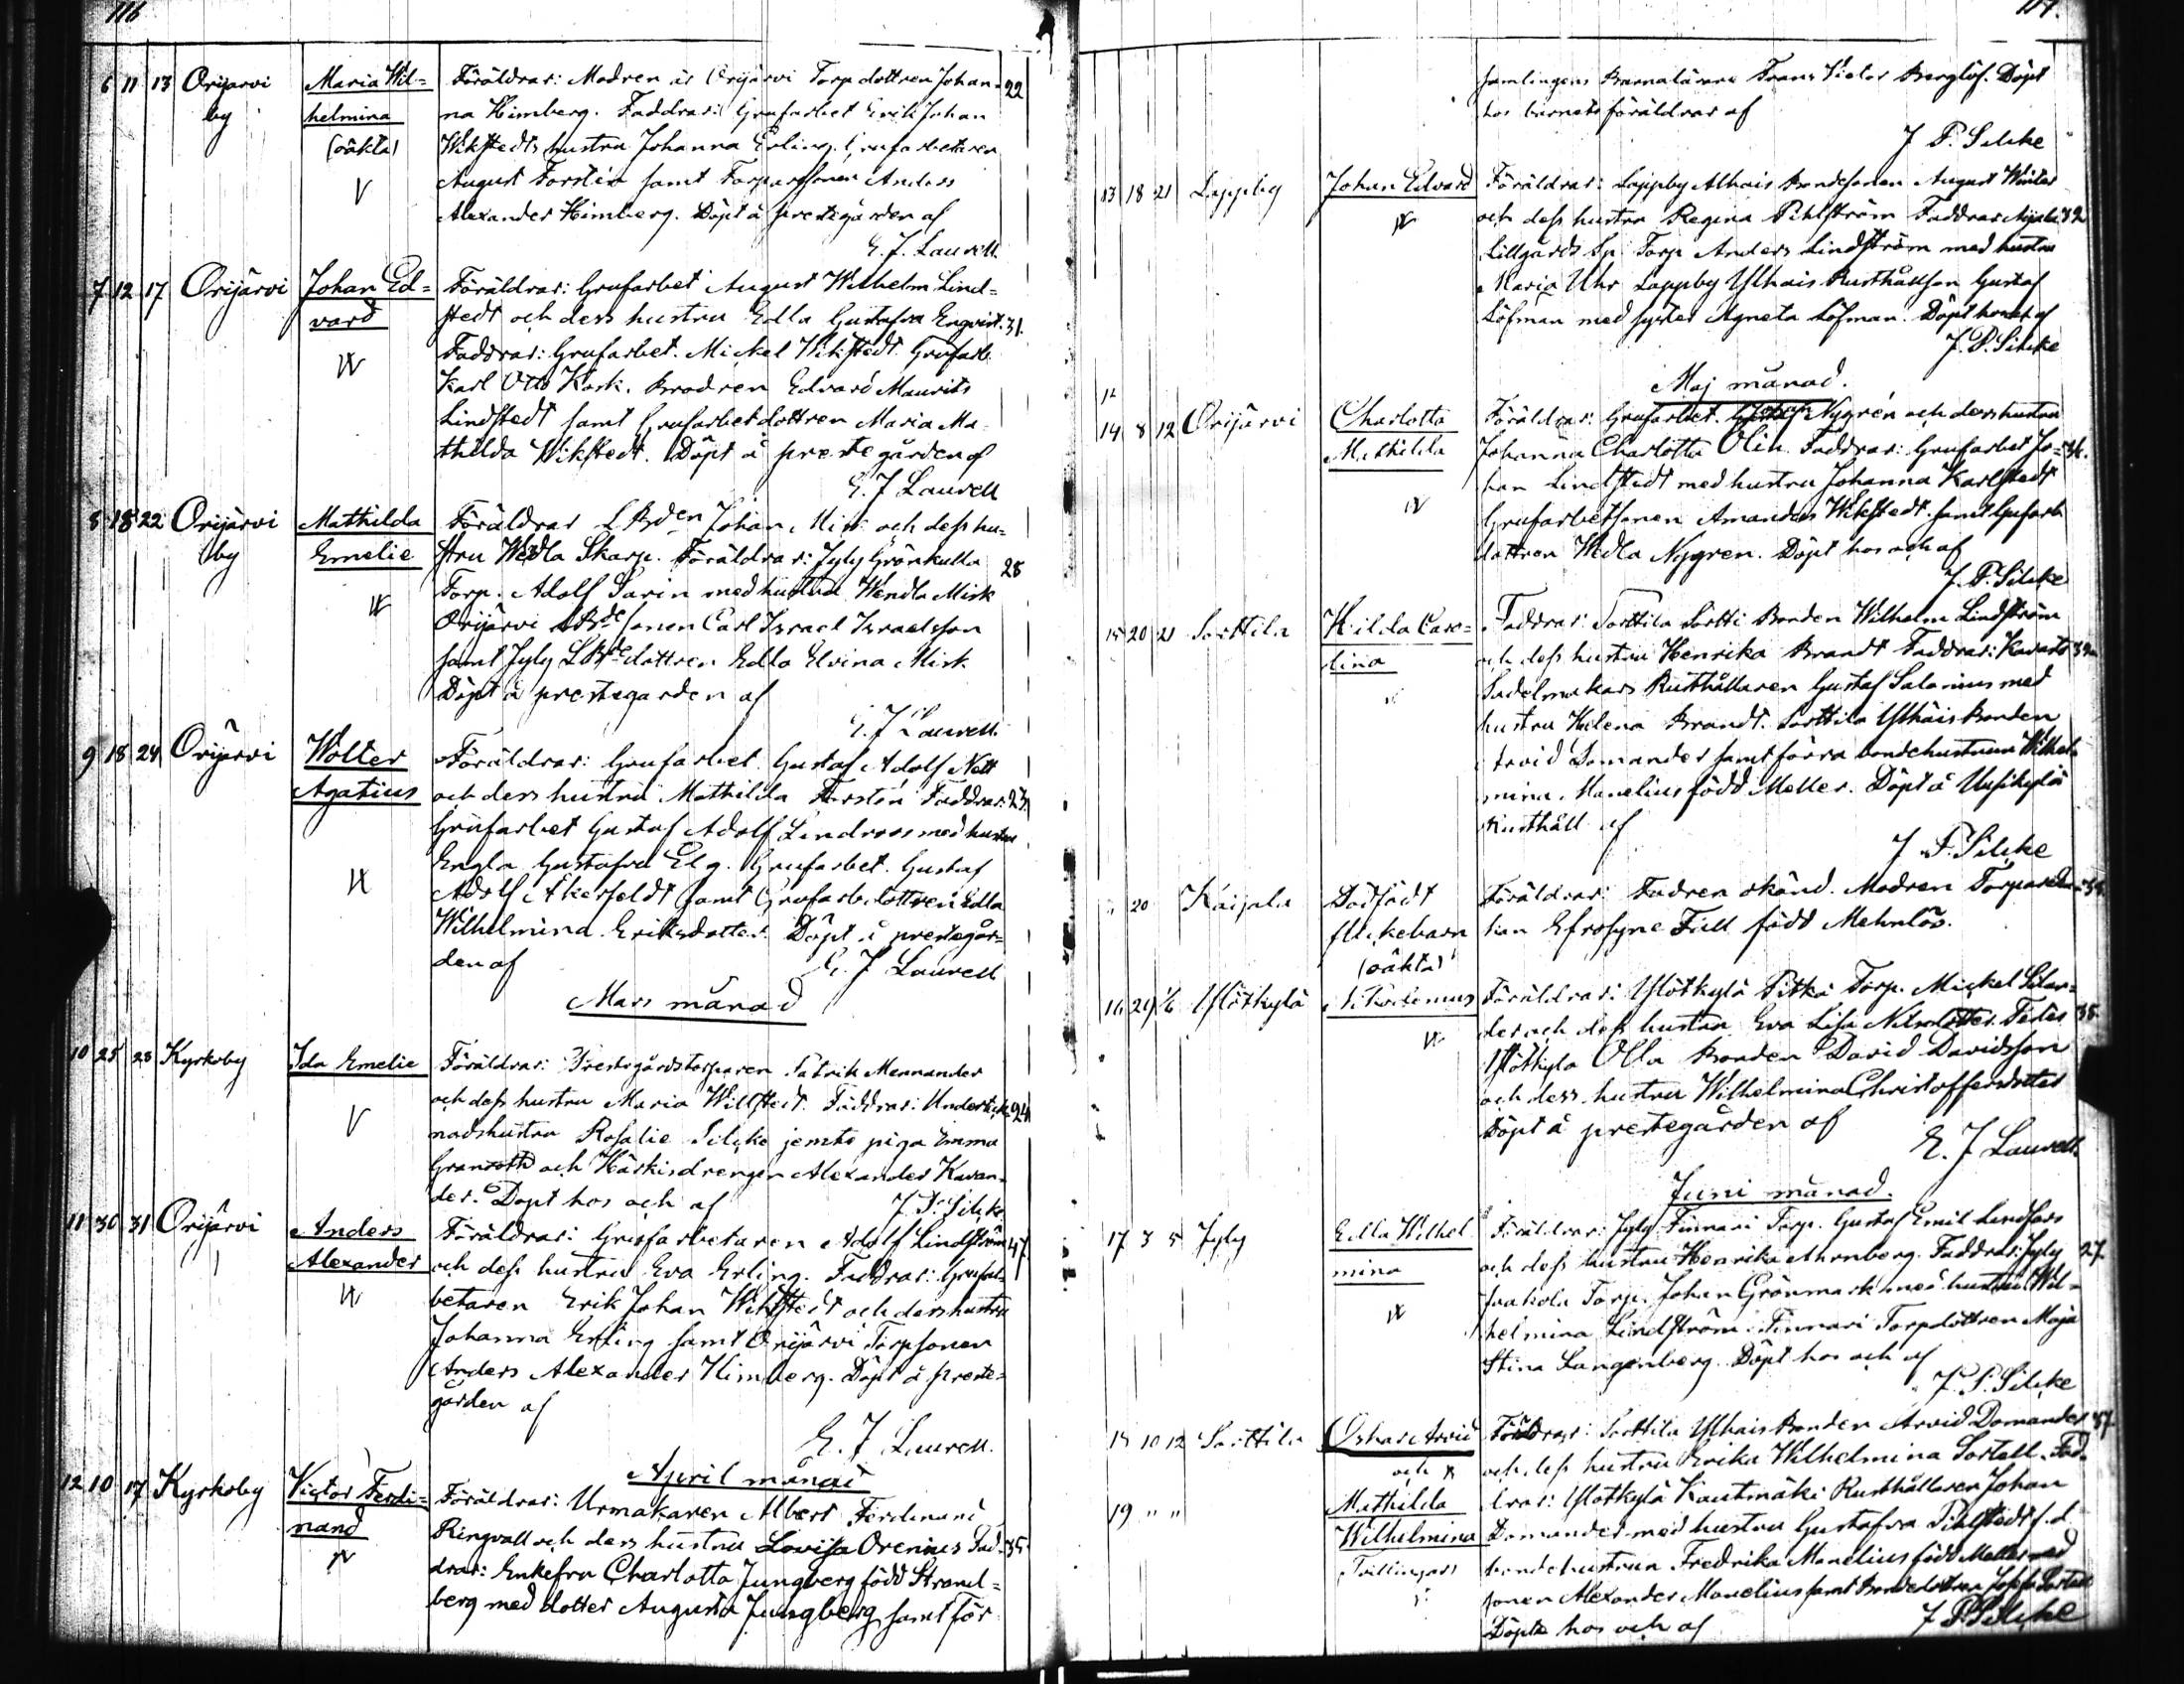 116
6 11 13 Orijärvi Maria Wil= Föräldrar: Modren är Orijärvi Torp dottren Johan- 22
by helmina na Himberg. Faddrar: Grufarbet Erik Johan
(oäkta) Wikstedts hustru Johanna Erling. Grufarbetaren
August Forstén samt Torparsonen Anders
Alexander Himberg. Döpt å prestgården af
E. J. Laurell.
7 12 17 Orijärvi Johan Ed= Föräldrar: Grufarbet August Wilhelm Lind=
vard stedt och dess hustru Edla Gustafva Engvist. 31.
Faddrar: Grufarbet. Mickel Wikstedt. Grufarb.
Karl Otto Kark. Brodren Edvard Maurits
Lindstedt samt Grufarbetdottren Maria Ma-
thilda Wikstedt. Döpt å prestegården af
E. J Laurell
8 18 22 Orijärvi Mathilda Föräldrar L Bden Johan Mirk och dess hu=
by Emelie stru Wedla Skarp. Föräldrar: Jyly Grönkulla 28
Torp. Adolf Sarin med hustru Wendla Mirk
Orijärvi LBde sonen Carl Israel Israelsson
samt Jyly L Bde dottren Edla Elvina Mirk
Döpt å prestegården af
E. J Laurell.
9 18 24 Orijärvi Wolter Föräldrar: Grufarbet. Gustaf Adolf Nett
Agatius och dess hustru Mathilda Forstén Faddrar: 27.
Grufarbet Gustaf Adolf Lindroos med hustru
Engla Gustafva Elg. Grufarbet. Gustaf
Adolf Åkerfeldt samt Grufarb. dottren Edla
Wilhelmina Eriksdotter. Döpt i prestegår=
den af E. J Laurell
Mars månad
10 25 28 Kyrkoby Ida Emelie Föräldrar: Prestegårdstorparen Patrik Mennander
och dess hustru Maria Willstedt. Faddrar: Underlöjt- 24
nadshustru Rosalie Silcke jemte piga Emma
Granroth och Härkisdrengen Alexander Kavan-
der. Döpt hos och af J. F. Silcke
11 30 31 Orijärvi Anders Föräldrar: Grufarbetaren Adolf Lindström 47.
Alexander och dess hustru Eva Erling. Faddrar: Grufar-
betaren Erik Johan Wikstedt och dess hustru
Johanna Erling samt Orijärvi Torpsonen
Anders Alexander Himberg. Döpt å preste=
gården af
E. J Laurell.
April månad
12 10 17 Kyrkoby Victor Ferdi= Föräldrar: Urmakaren Albert Ferdinand
nand Ringvall och dess hustru Lovisa Orenius Fad- 35.
drar: Enkefru Charlotta Jungberg född Strand=
berg med dotter Augusta Jungberg samt för
117.
samlingens Barnalärare Frans Victor Berglöf. Döpt
hos barnets föräldrar af
J F. Silcke
13 18 21 Lappby Johan Edvard Föräldrar: Lappby Alhais Bondesonen August Winter
och dess hustru Regina Pihlström Faddrar 32
Lillgårds Torp Anders Lindström med hustru
Maria Uhr Lappby Ylhais Rusthållson Gustaf
Löfman med syster Agneta Löfman. Döpt hos och af
J. F. Silcke
Maj månad.
14 8 12 Orijärvi Charlotta Föräldrar: Grufarbet. Nygrén och dess hustru
Mathilda Johanna Charlotta Olin. Faddrar: Grufarbet Jo= 34.
han Lindstedt med hustru Johanna Karlstedt
Grufarbetsonen Amandus Wikstedt samt Grufarb
dottren Wedla Nygren. Döpt hos och af
J. F. Silcke
15 20 21 Sorttila Hilda Caro= Faddrar: Sorttila Sortti Bonden Wilhelm Lindström
lina och dess hustru Henrika Brandt Faddrar:
Sadelmakars Rusthållaren Gustaf Salonius med
hustru Helena Brandt. Sorttila Ylhäis Bonden
Arvid Domander samt förra bondehustrun Wilhel-
mina Manelius född Meller. Döpt å Uusikylä
Rusthåll af
J. F. Silcke
20 Kaijala Dödfödt Föräldrar: Fadren okänd. Modren Torpare
flickebarn kan Efrosyne Fill född Mehnlös.
(oäkta)
16 29 1/6 Ylötkylä Nikodemus Föräldrar: Ylötkylä Pitkä Torp. Mickel Silan=
der och dess hustru Eva Lisa Nilsdotter 38
Ylötkylä Olla Bonden David Davidsson
och dess hustru Wilhelmina Christoffersdotter
Döpt å prestegården af
E. J Laurell.
Juni månad.
17 3 5 Jyly Edla Wilhel Föräldrar: Jyly Finnari Torp. Gustaf Emil Lindfors
mina och dess hustru Henrika Ahrnberg. Faddrar: Jyly 27.
Torp. Johan Grönmark med hustru Wil=
helmina Lindström. Finnari Torpdottren Maja
Stina Langenberg. Döpt hos och af
J. F. Silcke
18 10 12 Sorttila Oskar Arvid Föräldrar: Sorttila Ylhäis Bonden Arvid Domander 37.
och och dess hustru Erika Wilhelmina Sortell. Fad-
19 " " Mathilda drar: Ylötkylä Kautmäki Rusthållaren Johan
Wilhelmina Domander med hustru Gustafva Pihlstedt f.d.
Tvillingar bondehustrun Fredrika Manelius född Meller med
sonen Alexander Manelius samt Bondedottren Josefa Sortell
Döpta hos och af J F. Silcke